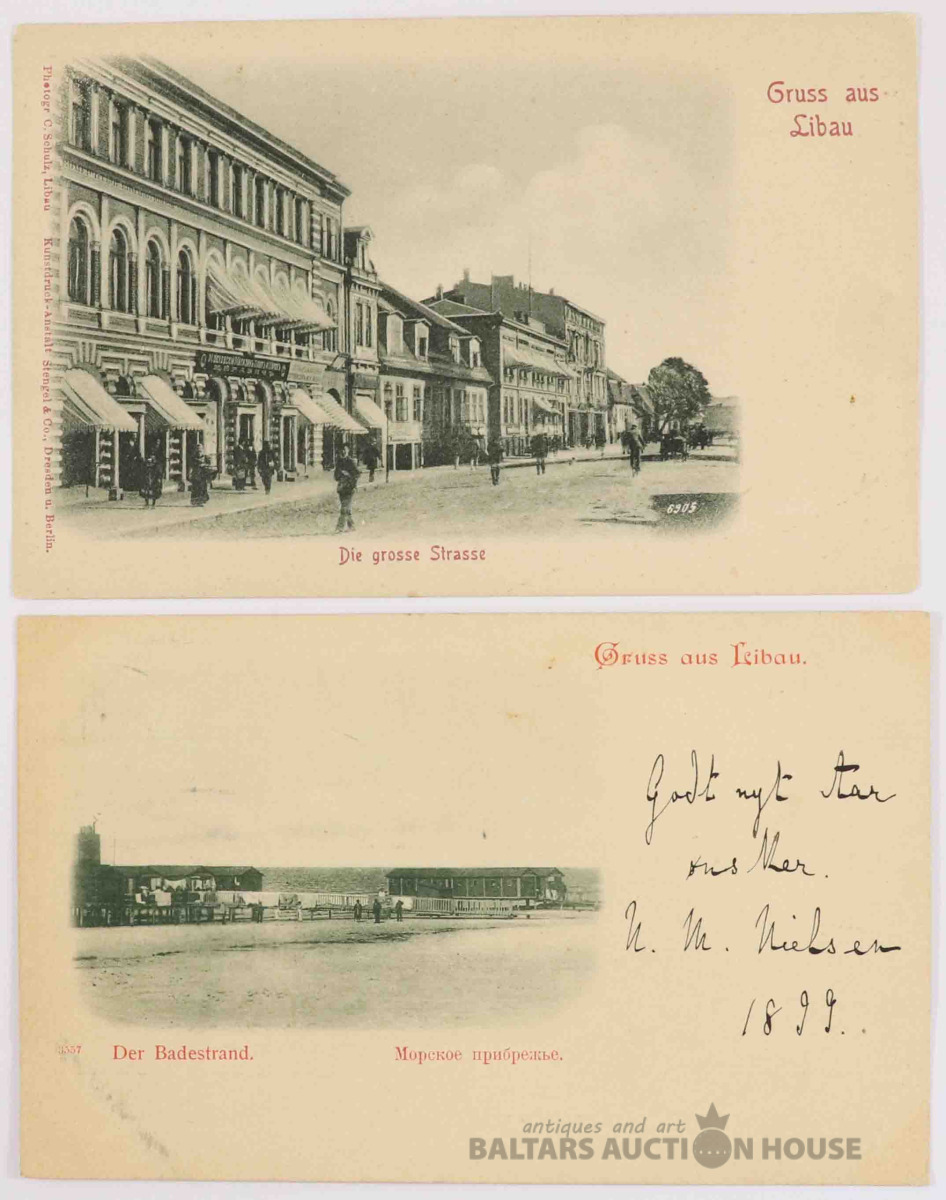 Gruss aus
Libau
Photogr C. Schulz, Libau Kunstdruck-Anstalt Stengel & Co., Dresden u. Berlin.
6905
Die grosse Strasse
Gruss aus Libau.
Godt nyt Aar
N. M. Nielsen
1899.
3557 Der Badestrand. Морское прибрежье.
antiques and art
BALTARS AUCTION HOUSE